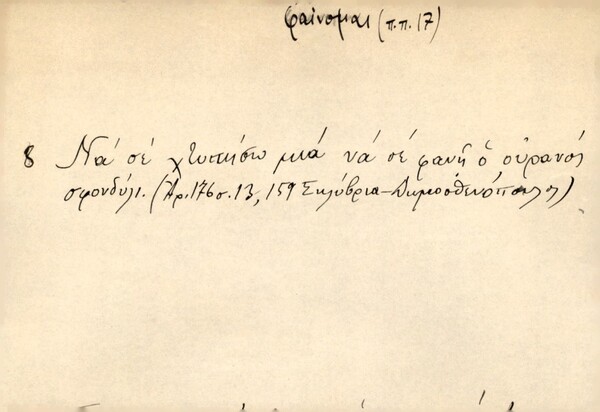 φαίνομαι (π.π. 17)
8 Νά σέ χτυπήσω μιά νά σέ φανῇ ὁ οὐρανός
σφονδύλι. (Ἀρ. 176 σ. 13, 159 Σηλύβρια-Δημοσθενόπουλος)